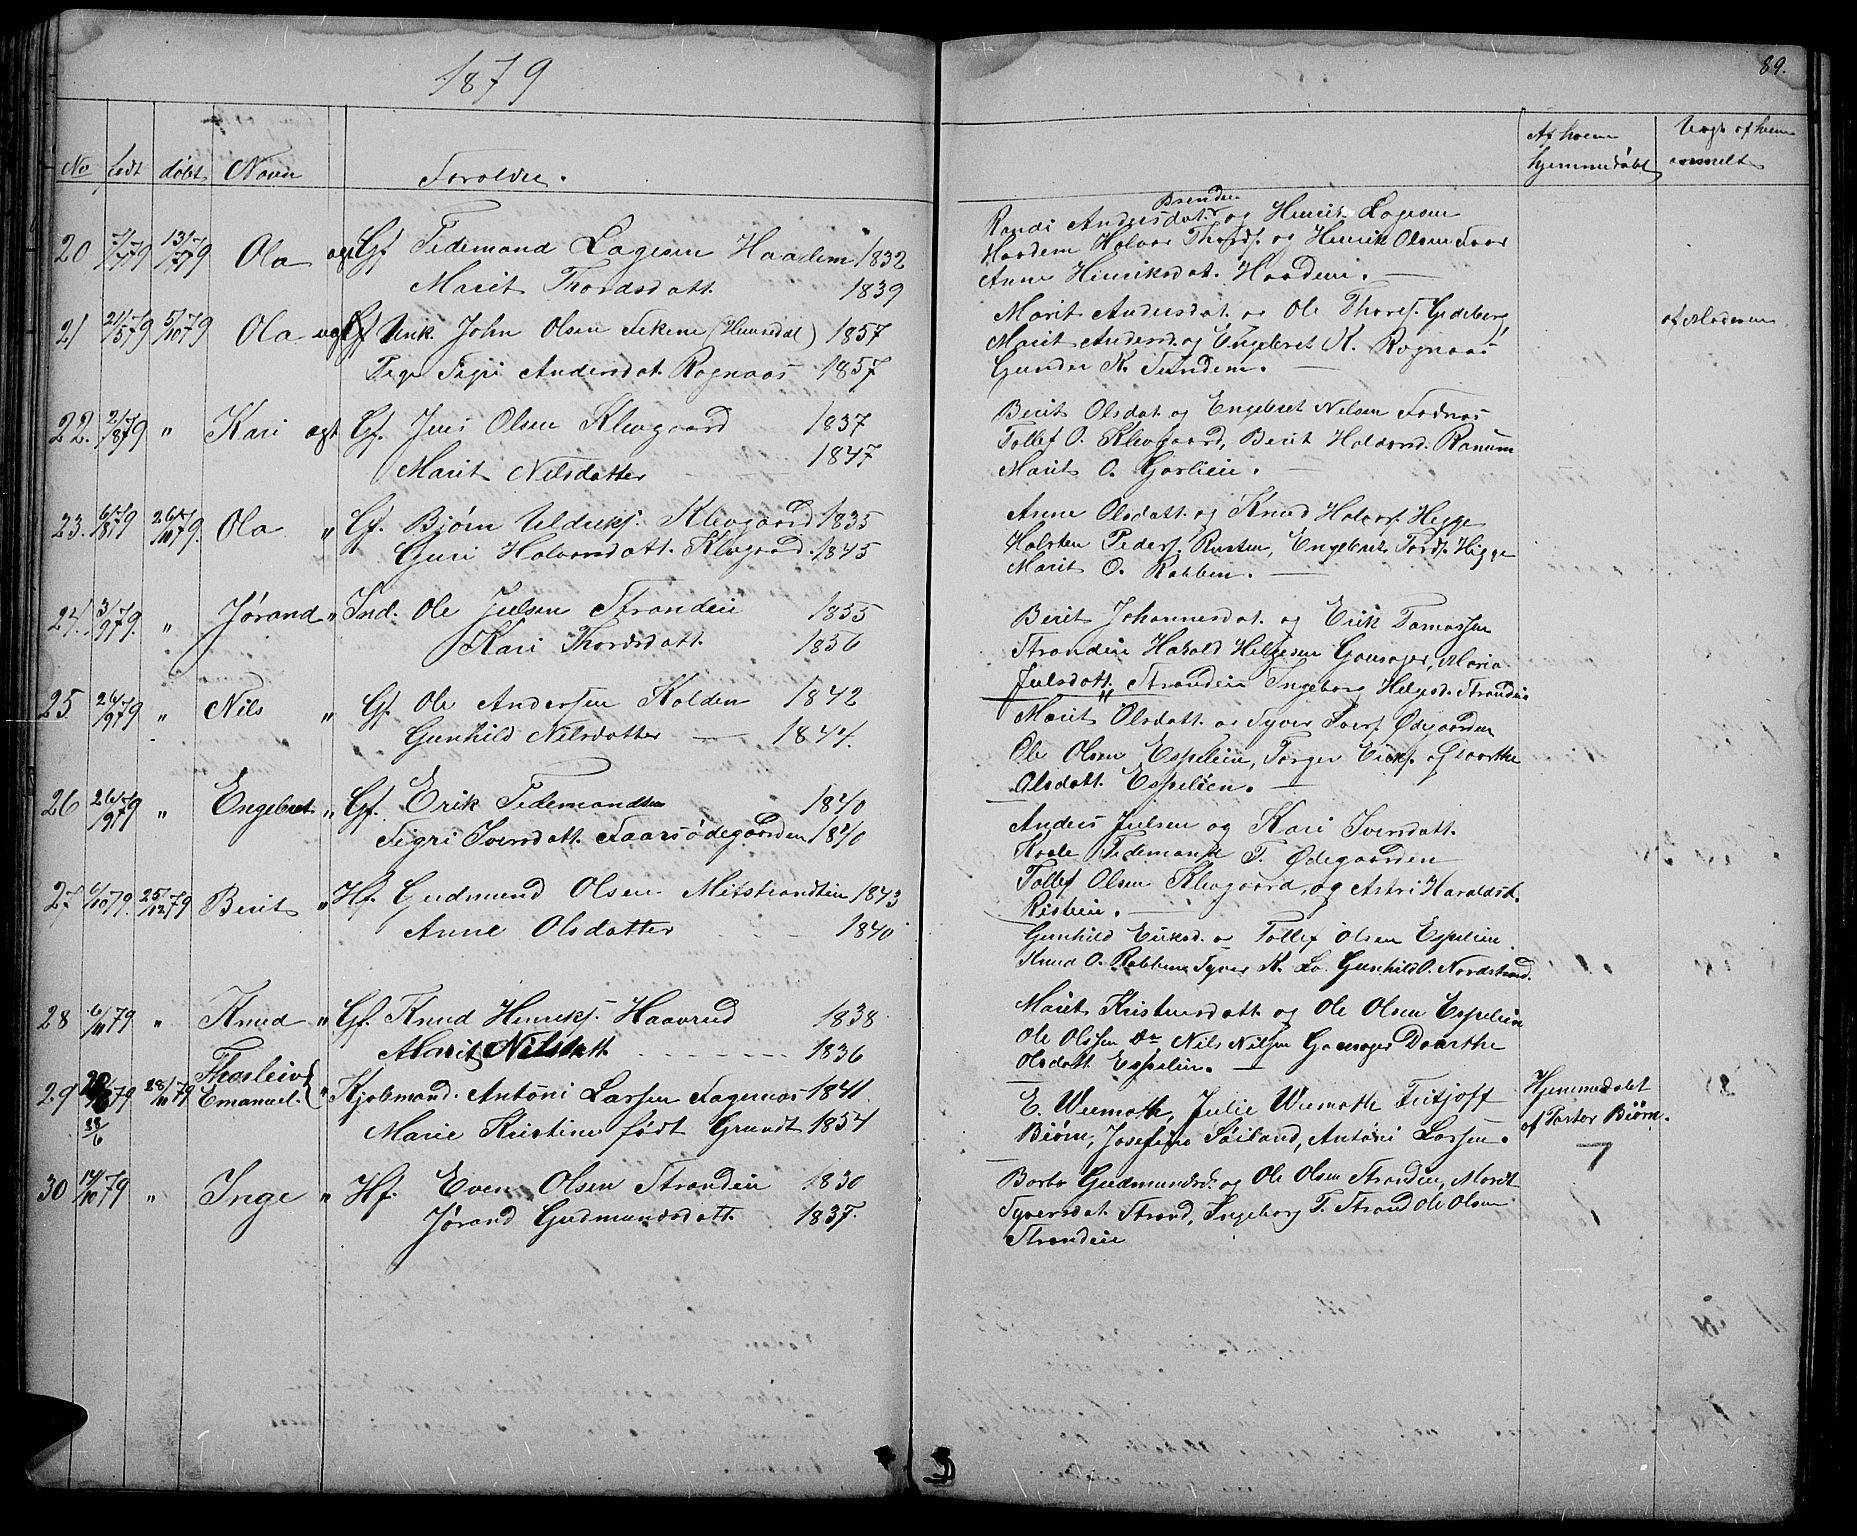 1879
89.
No født døbt Navn Foreldre.
Af hvem hjemmedøbt
af hvem anmelt
20 7/7 79 13/7 79 Ola ægt Gf Tidemand Lagesen Haadem 1832
Marit Thordsdatt. 1839
Brenden
Randi Andersdat. og Henrik Lagesen
Haadem Halvor Thords. og Henrik Olsen Foss
Anne Henriksdat. Haadem. —
21 21/5 79 5/10 79 Ola uægt Unk. John Olsen Ekene (Hemsdal) 1857
Pige Sigri Andersdat. Rognaas 1857
Marit Andersdat. og Ole Thores. Gudeberg
Marit Andersd. og Engebret K. Rognaas
Gunder K. Tundem. —
af Moderen
22. 2/8 79 " Kari ægt Gf. Jens Olsen Klevgaard 1837
Marit Nilsdatter 1847
Berit Olsdat. og Engebret Nilsen Fodnes
Tollef O. Klevgaard, Berit Haldorsd. Ranum
Marit O. Garlien. —
23. 6/8 79 26/10 79. Ola " Gf. Bjørn Uldriks. Klevgaard 1835
Guri Halvorsdatt. Klevgaard. 1845
Anne Olsdatt. og Knud Halvors. Hegge
Halsten Peders. Rusten, Engebret Tords. Higge
Marit O. Robben. —
24. 3/9 79. " Jørand " Ind. Ole Julsen Strandeie 1855
Kari Thordsdatt. 1856
Berit Johannesdat. og Erik Tomassen
Strandeie Harald Helgesen Gausager, Maria
Julsdatt. Strandeie Ingeborg Helgesd. Strandeie
25. 26/9 79 " Nils " Gf. Ole Andersen Kolden 1842
Gunhild Nilsdatter — 1844.
Marit Olsdatt. og Syver Ivers. Ødegaarden
Ole Olsen Espelien, Torger Eriks. og Dorthe
Olsdatt. Espelien. —
26 26/9 79 " Engebret " Gf. Erik Tidemandsen 1840
Sigri Iversdatt. Faarsødegaarden 1840
Anders Julsen og Kari Iversdatt.
Tidemands. F. Ødegaarden
Tollef Olsen Klevgaard, og Astri Haraldsd.
27 6/10 79. 25/12 79 Berit " Hf. Gudmund Olsen Mitstrandeie 1843
Anne Olsdatter 1840
Gunhild Eriksd. og Tollef Olsen Espelien.
Knud O. Robben Syver K. Lo. Gunhild O. Nordstrand.
28 6/11 79 " Knud " Gf. Knud Henriks. Haavrud 1838
Marit Nilsdatt. 1836
Marit Kristensdatt. og Ole Olsen Espelien
Ole Olssen do Nils Nilsen Gausager Dorthe
Olsdatt. Espelien. —
29 79 28/11 79 Thorleiv Emanuel. " Kjøbmand. Antoni Larsen Fagernæs 1841
28/6 Marie Kristine født Grundt 1854
E. Wermoth, Julie Wermoth Fritjoff
Biørn, Josefine Søiland, Antoni Larsen.
Hjemmedøbt
af Pastor Biørn.
30 17/10 79 " Inge " Hf. Even Olsen Strandeie 1830
Jørand Gudmundsdatt. 1837.
Barbo Gudmundsd. og Ole Olsen Strandeie, Marit
Syversdat. Strand, Ingeborg T. Strand Ole Olsen
Strandeie